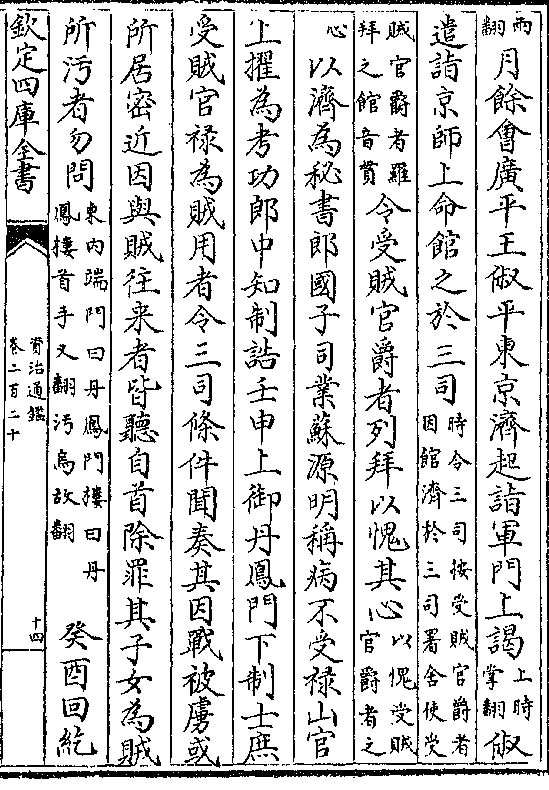 兩翻月餘會廣平王俶平東京濟起詣軍門上謁上時掌翻俶
遣詣京師上命館之於三司時令三司按受賊官爵者因館濟於三司署舍使受
賊官爵者羅拜之館音貫令受賊官爵者列拜以愧其心以愧受賊官爵者之
心以濟為秘書郎國子司業蘇源明稱病不受禄山官
上擢為考功郎中知制誥壬申上御丹鳳門下制士庶
受賊官禄為賊用者令三司條件聞奏其因戰被虜或
所居密近因與賊往来者皆聽自首除罪其子女為賊
所汚者勿問東内端門曰丹鳳門樓曰丹鳳樓首手又翻汚烏故翻癸酉回紇
欽定四庫全書
資治通鑑
卷二百二十
十四